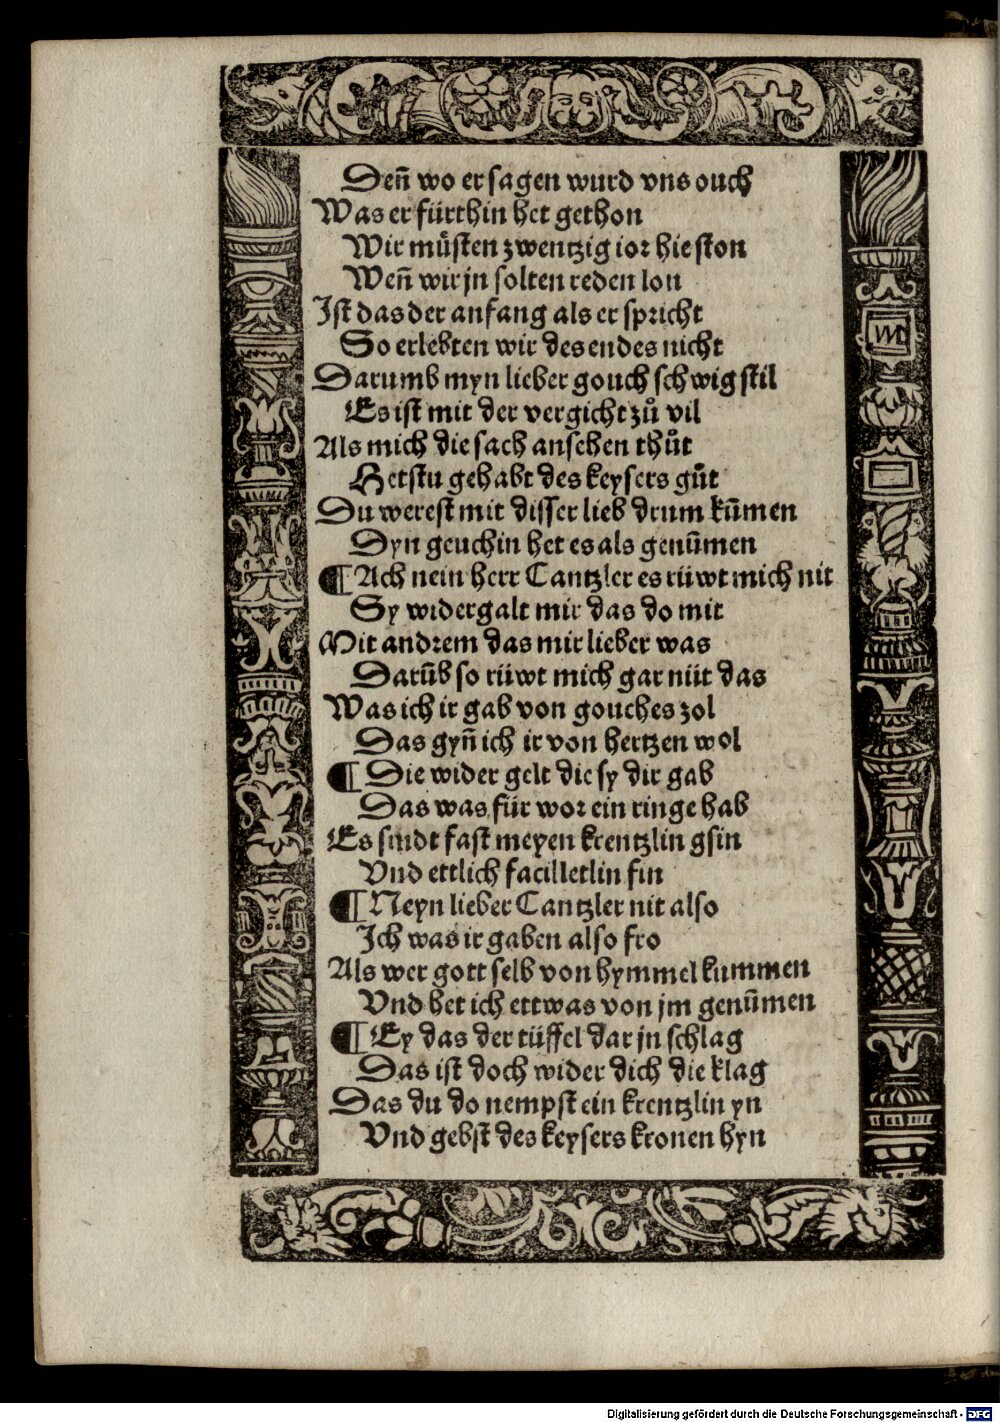 Deñ wo er sagen wurd vns ouch
Was er fürthin het gethon
Wir müsten zwentzig ior hie ston
Weñ wir jn solten reden lon
Ist das der anfang als er spricht
So erlebten wir des endes nicht
Darumb myn lieber gouch schwig stil
Es ist mit der vergicht zů vil
Als mich die sach ansehen thůt
Hetstu gehabt des keysers gůt
Du werest mit disser lieb drum kūmen
Dyn geuchin het es als genūmen
¶ Ach nein herr Cantzler es rüwt mich nit
Sy widergalt mir das do mit
Mit andrem das mir lieber was
Darūb so rüwt mich gar nüt das
Was ich ir gab von gouches zol
Das gyñ ich ir von hertzen wol
¶ Die wider gelt die sy dir gab
Das was für wor ein ringe hab
Es sindt fast meyen krentzlin gsin
Vnd ettlich facilletlin fin
¶ Neyn lieber Cantzler nit also
Ich was ir gaben also fro
Als wer gott selb von hymmel kummen
Vnd het ich ettwas von jm genūmen
¶ Ey das der tüffel dar jn schlag
Das ist doch wider dich die klag
Das du do nempst ein krentzlin yn
Vnd gebst des keysers kronen hyn
VM
Digitalisierung gefördert durch die Deutsche Forschungsgemeinschaft - DFG